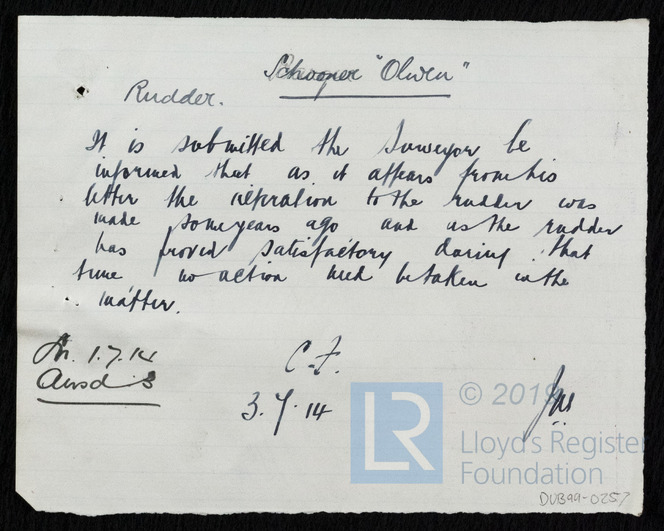 Schooner "Olwen"
Rudder.
It is submitted the Surveyor be
informed that as it appears from his
letter the alteration to the rudder was
made some years ago and as the rudder
has proved satisfactory during that
time no action need be taken in the
matter.
1.7.14
Ansd 3
C.F.
3.7.14
LR
© 2019
Lloyd's Register
Foundation
DUB99-0257